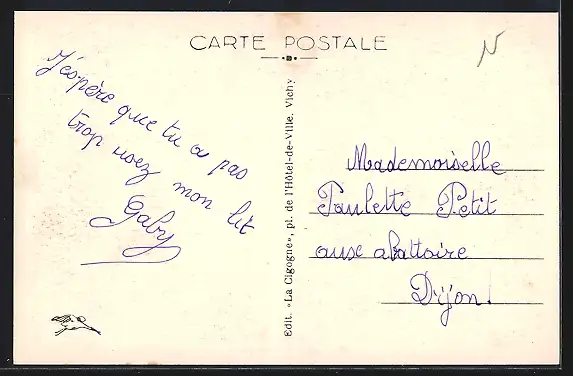 CARTE POSTALE
N
J'espère que tu a pas
trop usez mon lit
Gaby
Edit. «La Cigogne», pl. de l'Hôtel-de-Ville, Vichy
Mademoiselle
Paulette Petit
aux abattoire
Dijon.